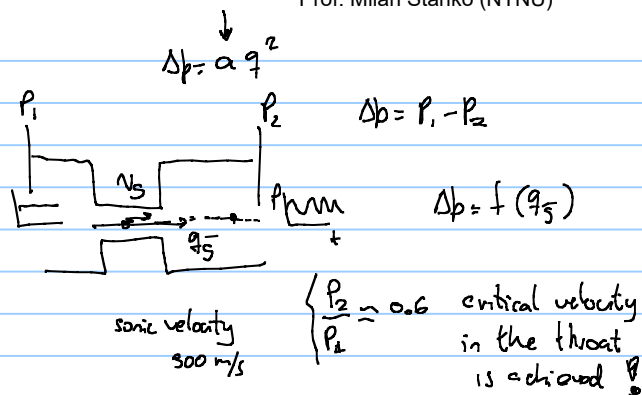 Prof. Milan Stanko (NTNU)
Δp = a q²
P₁
P₂
Δp = P₁ - P₂
P
t
q_g̅
Δp = f (q_g̅)
sonic velocity
300 m/s
P₂/P₁ ≈ 0.6
critical velocity
in the throat
is achieved !